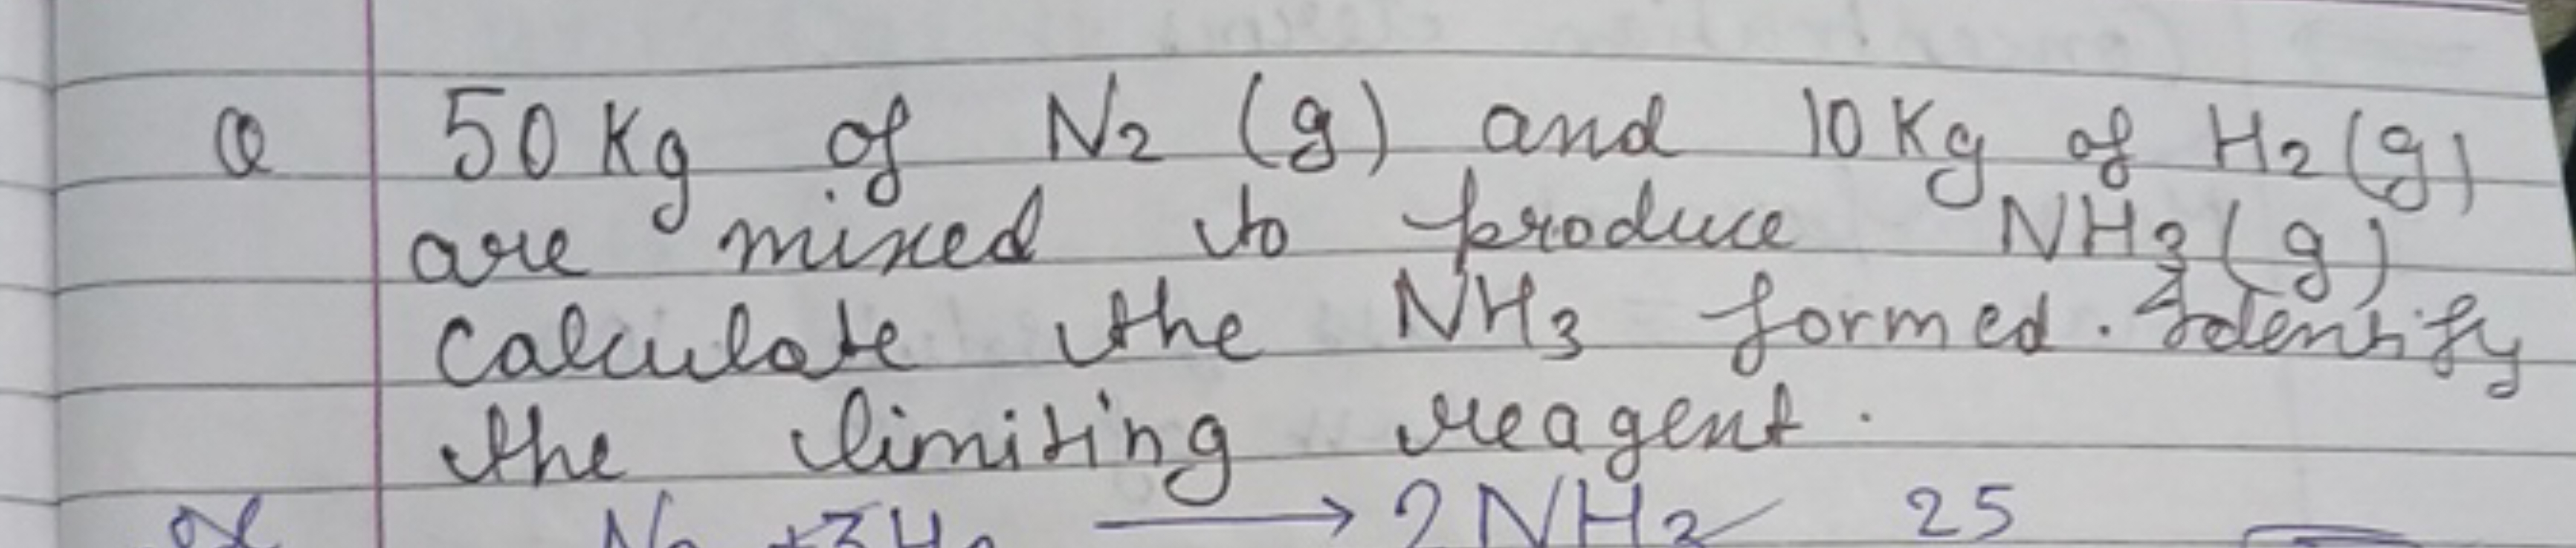 Q 50 Kg of N2 (g) and 10 Kg of H2 (g)
are mixed to produce NH3 (g)
Calculate the NH3 formed. Identify
the limiting reagent.
N2 + 3H2 → 2NH3 25